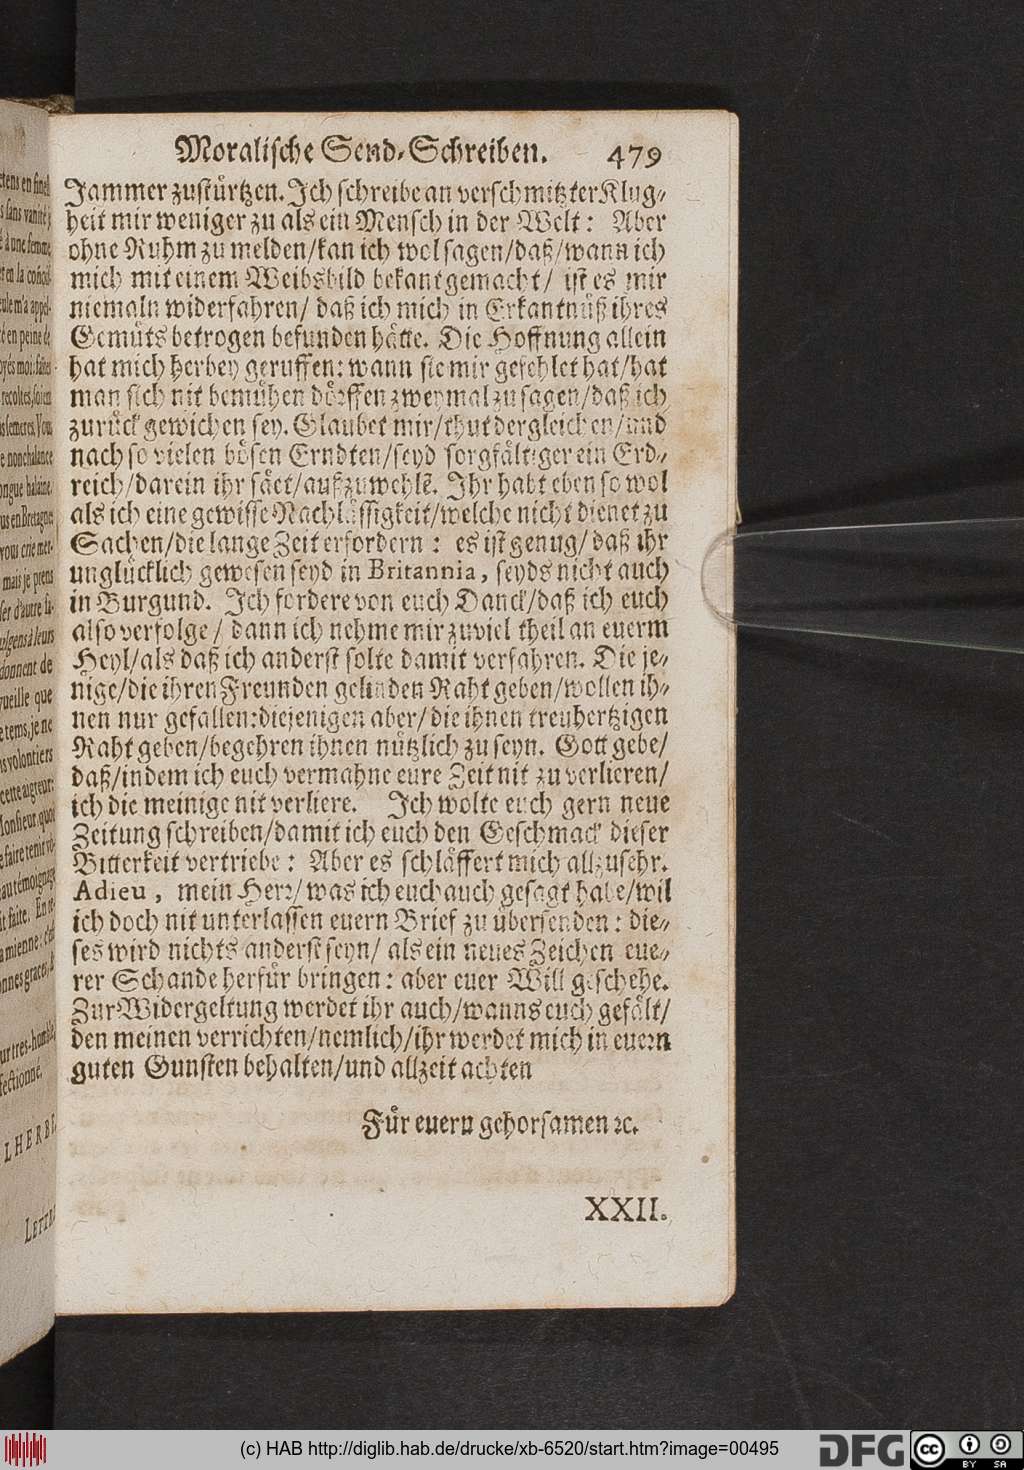 Moralische Send-Schreiben. 479
Jammer zustürtzen. Ich schreibe an verschmitzter Klug-
heit mir weniger zu als ein Mensch in der Welt: Aber
ohne Ruhm zu melden/kan ich wol sagen/daß/wann ich
mich mit einem Weibsbild bekant gemacht/ ist es mir
niemaln widerfahren/ daß ich mich in Erkantnüß ihres
Gemüts betrogen befunden hätte. Die Hoffnung allein
hat mich herbey geruffen: wann sie mir gefehlet hat/hat
man sich nit bemühen dörffen zweymal zu sagen/daß ich
zurück gewichen sey. Glaubet mir/thut dergleichen/und
nach so vielen bösen Erndten/seyd sorgfältiger ein Erd-
reich/darein ihr säet/aufzuwehlẽ. Ihr habt eben so wol
als ich eine gewisse Nachlässigkeit/welche nicht dienet zu
Sachen/die lange Zeit erfordern: es ist genug/daß ihr
unglücklich gewesen seyd in Britannia, seyds nicht auch
in Burgund. Ich fordere von euch Danck/daß ich euch
also verfolge/ dann ich nehme mir zuviel theil an euerm
Heyl/als daß ich anderst solte damit verfahren. Die je-
nige/die ihren Freunden gelinden Raht geben/wollen ih-
nen nur gefallen: diejenigen aber/die ihnen treuhertzigen
Raht geben/begehren ihnen nützlich zu seyn. Gott gebe/
daß/indem ich euch vermahne eure Zeit nit zu verlieren/
ich die meinige nit verliere. Ich wolte euch gern neue
Zeitung schreiben/damit ich euch den Geschmack dieser
Bitterkeit vertriebe: Aber es schläffert mich allzusehr.
Adieu, mein Herr/was ich euch auch gesagt habe/wil
ich doch nit unterlassen euern Brief zu übersenden: die-
ses wird nichts anderst seyn/ als ein neues Zeichen eue-
rer Schande herfür bringen: aber euer Will geschehe.
Zur Widergeltung werdet ihr auch/wanns euch gefält/
den meinen verrichten/nemlich/ihr werdet mich in euern
guten Gunsten behalten/und allzeit achten
Für euern gehorsamen ꝛc.
XXII.
(c) HAB http://diglib.hab.de/drucke/xb-6520/start.htm?image=00495
DFG
cc BY SA